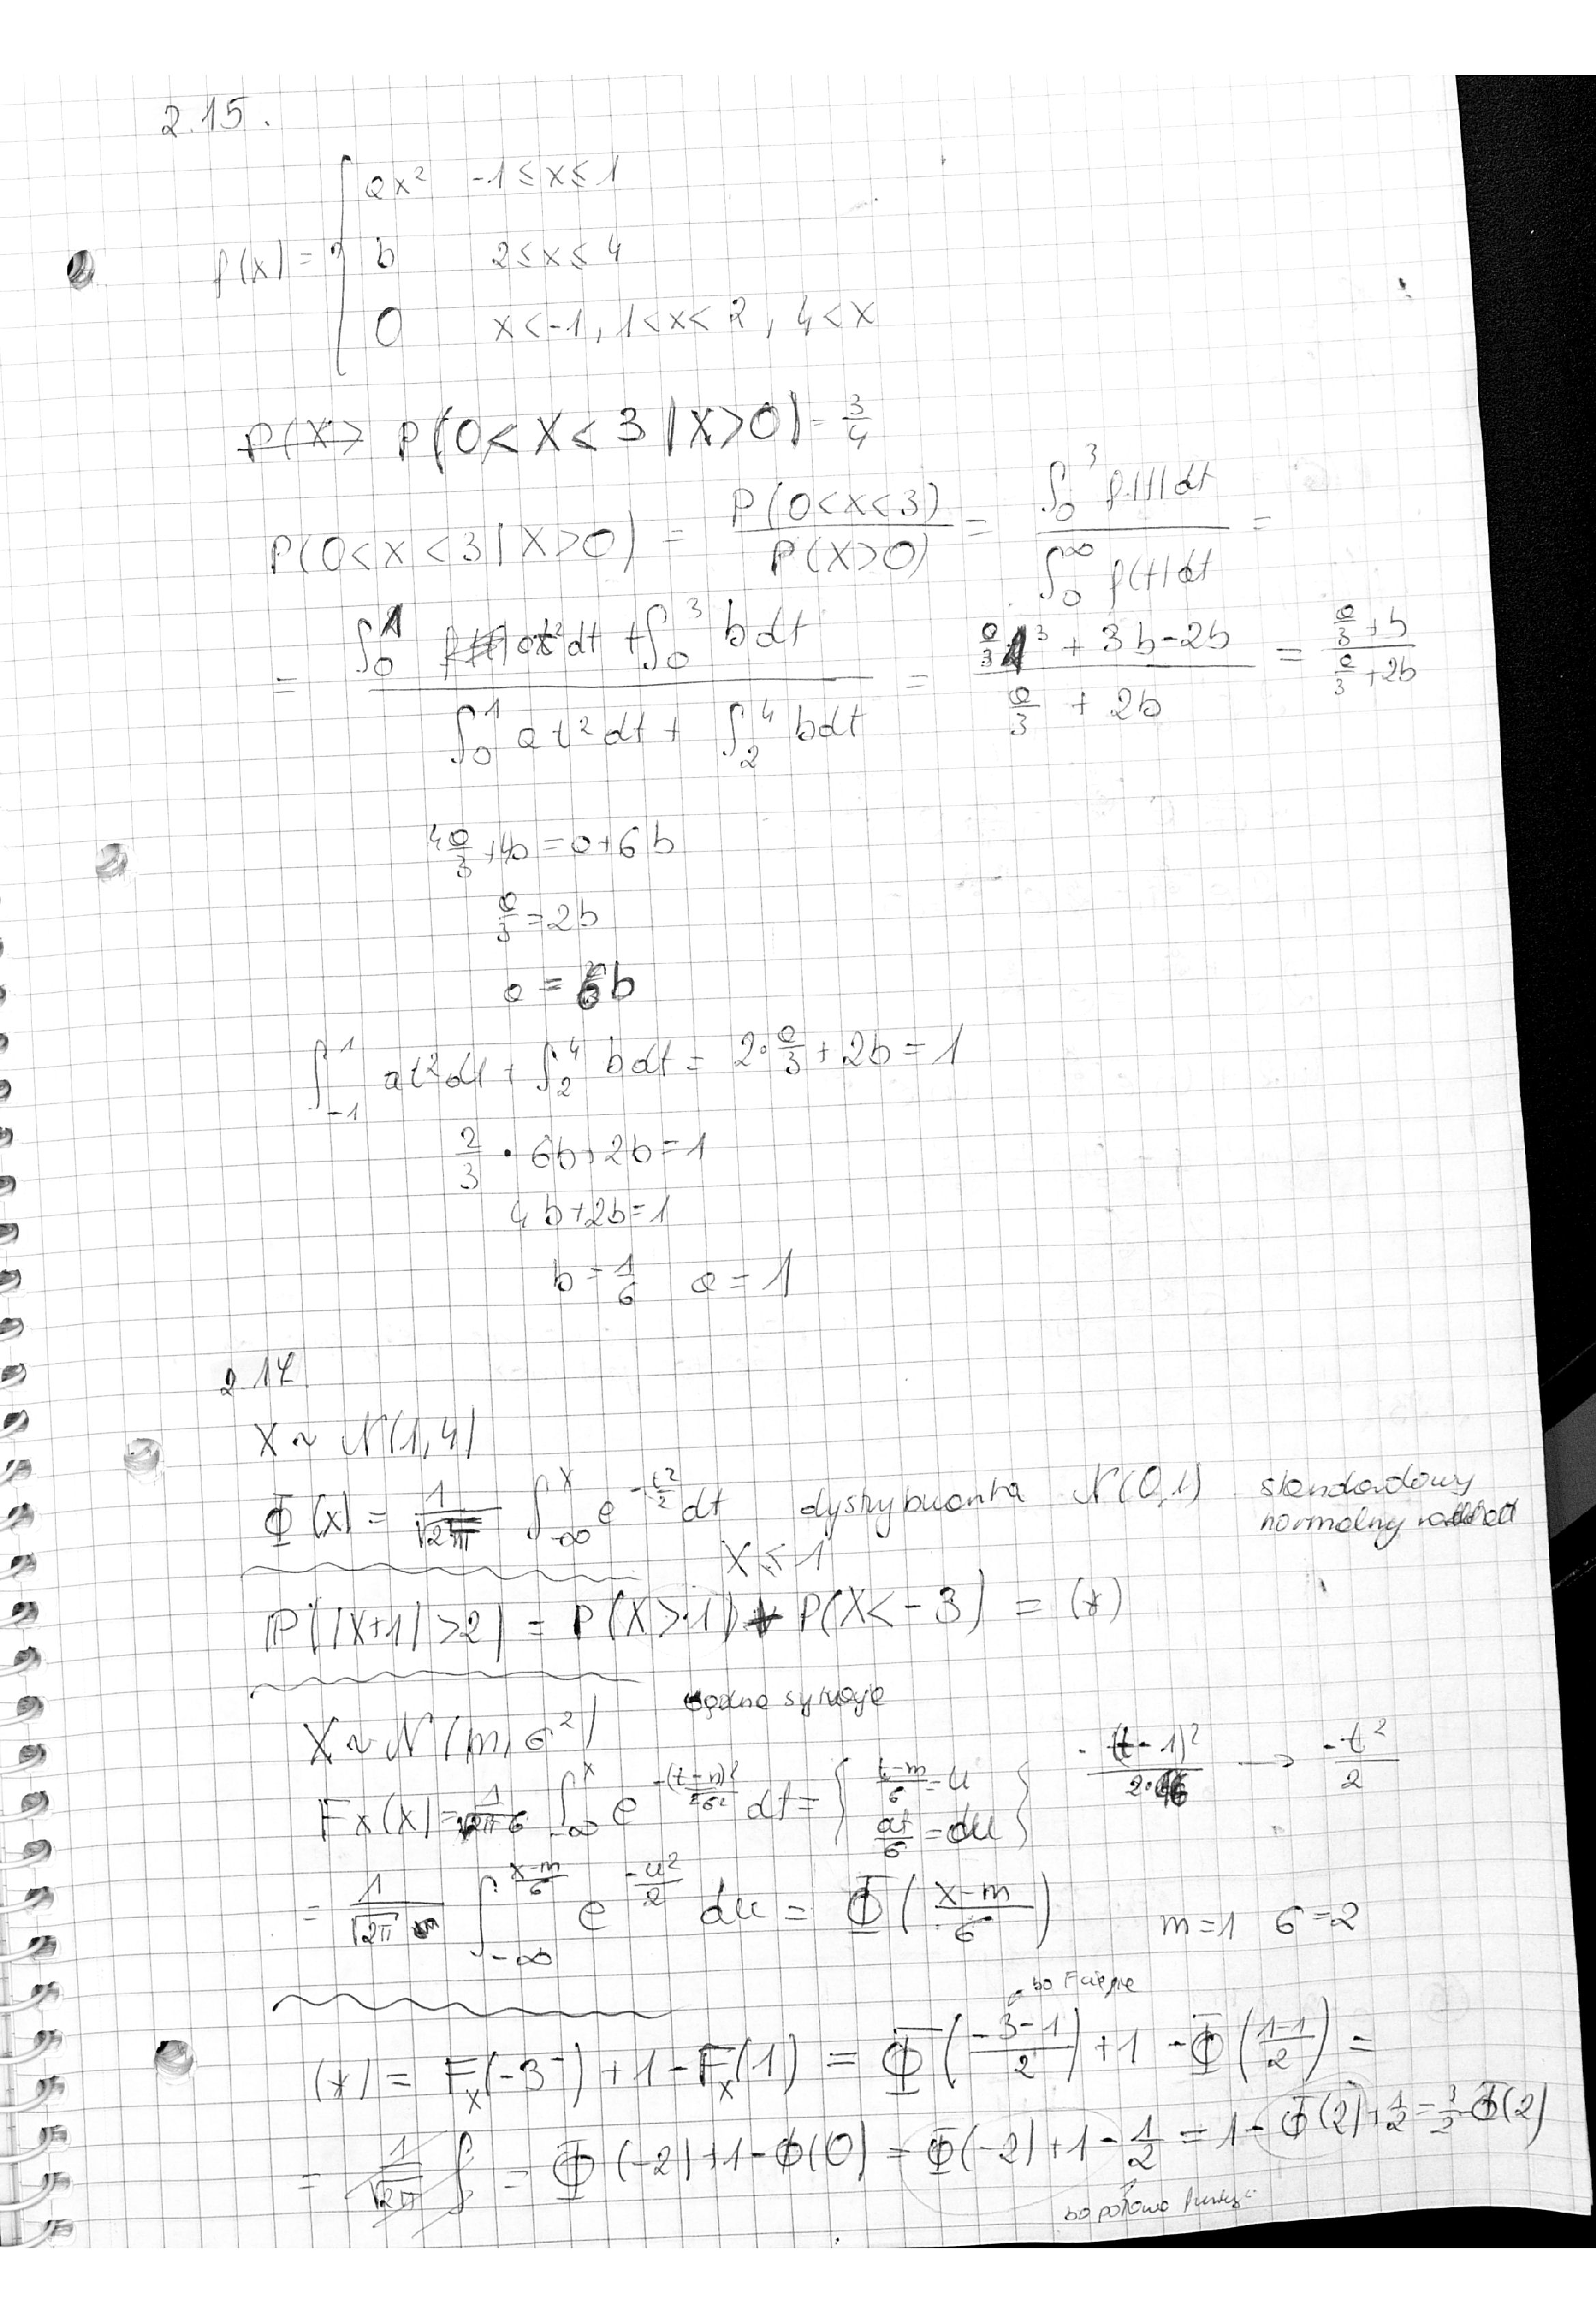 2.15.
f(x) = { ax² -1 ≤ x ≤ 1
b 2 ≤ x ≤ 4
0 x < -1, 1 < x < 2, 4 < x
P(0 < X < 3 | X > 0) = 3/4
P(0 < X < 3 | X > 0) = P(0 < X < 3) / P(X > 0) = ∫₀³ f(t) dt / ∫₀^∞ f(t) dt =
= (∫₀¹ at² dt + ∫₀³ b dt) / (∫₀¹ at² dt + ∫₂⁴ b dt) = (a/3 1³ + 3b - 2b) / (a/3 + 2b) = (a/3 + b) / (a/3 + 2b)
4a/3 + 4b = a + 6b
a/3 = 2b
a = 6b
∫₋₁¹ at² dt + ∫₂⁴ b dt = 2·a/3 + 2b = 1
2/3 · 6b + 2b = 1
4b + 2b = 1
b = 1/6 a = 1
2.17.
X ~ N(1,4)
Φ(x) = 1/√2π ∫_{-∞}^x e^{-t²/2} dt dystrybuanta N(0,1) standardowy
normalny
X ≤ 1
P(|X+1| > 2) = P(X > 1) + P(X < -3) = (*)
X ~ N(m, σ²)
Fx(x) = 1/√2π σ ∫_{-∞}^x e^{-(t-m)²/2σ²} dt = { (t-m)/σ = u -(t-1)²/2· → -t²/2
dt/σ = du }
= 1/√2π ∫_{-∞}^{(x-m)/σ} e^{-u²/2} du = Φ((x-m)/σ) m = 1 σ = 2
bo F ciągłe
(*) = F_X(-3⁻) + 1 - F_X(1) = Φ((-3-1)/2) + 1 - Φ((1-1)/2) =
= Φ(-2) + 1 - Φ(0) = Φ(-2) + 1 - 1/2 = 1 - Φ(2) + 1/2 = 3/2 - Φ(2)
bo połowa